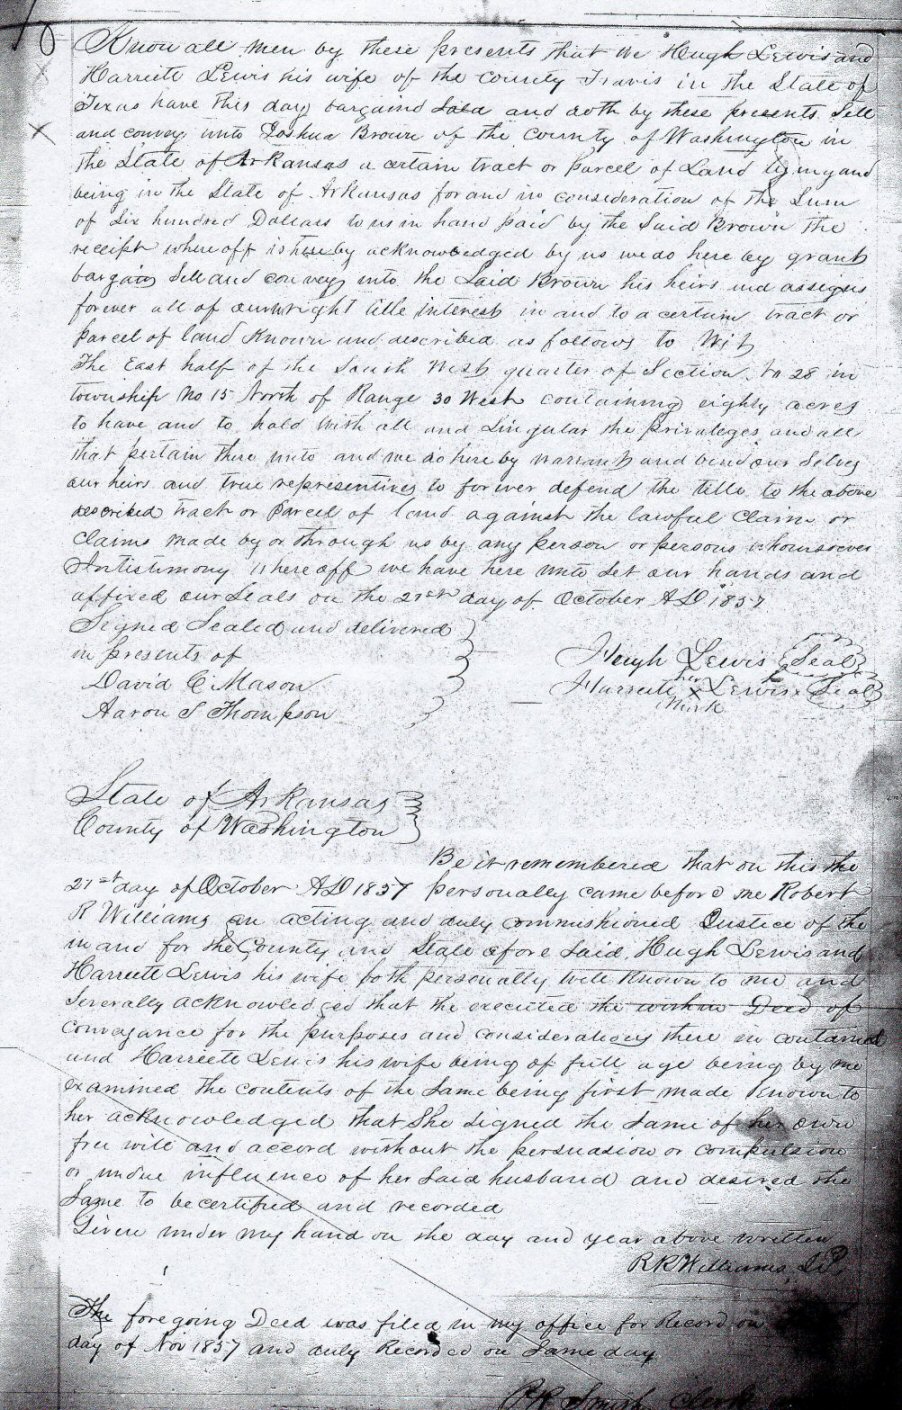 Know all men by these presents that we Hugh Lewis and
Harriete Lewis his wife of the county Travis in the State of
Texas have this day bargaind Sold and doth by these presents Sell
and convey unto Joshua Brown of the County of Washington in
the State of Arkansas a certain tract or parcel of Land lying and
being in the State of Arkansas for and in consideration of the Sum
of Six hundred Dollars to us in hand paid by the Said Brown the
receipt whereoff is hereby acknowledged by us we do here by grant
bargain Sell and convey unto the Said Brown his heirs and assigns
forever all of our right title interest in and to a certain tract or
parcel of land Known and described as follows to Wit
The East half of the South West quarter of Section No 28 in
township No 15 North of Range 30 West containing eighty acres
to have and to hold with all and Singular the privileges and all
that pertain there unto and we do here by warrant and bind our Selves
our heirs and true representives to forever defend the title to the above
described tract or parcel of land against the lawful claim or
claims made by or through us by any person or persons whomsoever
In testimony Whereoff we have here unto Set our hands and
affixed our Seals on the 21st day of October AD 1857
Signed Sealed and delivered
in presents of
Hugh Lewis (Seal)
David C Mason
her
Harriete X Lewis (Seal)
mark
Aaron S Thompson
State of Arkansas
County of Washington
Be it remembered that on this the
21st day of October AD 1857 personally came before me Robert
R Williams an acting and duly commishioned Justice of the
in and for the County and State afore Said Hugh Lewis and
Harriete Lewis his wife both personally well Known to me and
Severally acknowledged that the executed the within Deed of
conveyance for the purposes and considerations there in contained
and Harriete Lewis his wife being of full age being by me
examined the contents of the Same being first made Known to
her acknowledged that She signed the Same of her own
free will and accord without the persuasion or compulsion
or undue influence of her Said husband and desired the
Same to be certified and recorded
Given under my hand on the day and year above written
R R Williams J P
The foregoing Deed was filed in my office for Record on
day of Nov 1857 and duly Recorded on Same day
P R Smith Clerk